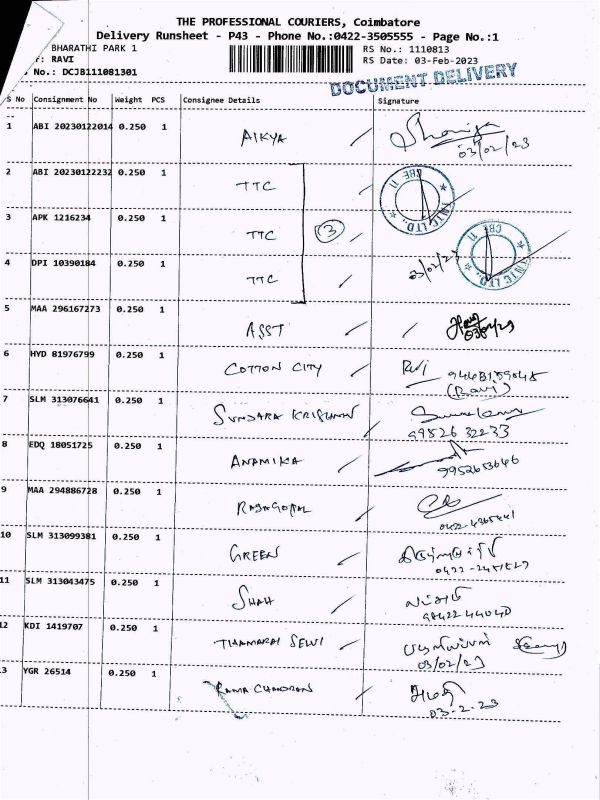 THE PROFESSIONAL COURIERS, Coimbatore
Delivery Runsheet - P43 - Phone No.:0422-3505555 - Page No.:1
BHARATHI PARK 1
RS No.: 1110813
: RAVI
RS Date: 03-Feb-2023
No.: DCJB111081301
DOCUMENT DELIVERY
S No Consignment No Weight PCS Consignee Details Signature
1 ABI 20230122014 0.250 1 AIKYA
03/02/23
2 ABI 20230122232 0.250 1 TTC
CBE 11
3 APK 1216234 0.250 1 TTC 3
CBE 11
4 DPI 10390184 0.250 1 TTC 03/02/23
5 MAA 296167273 0.250 1 ASST
03/02/23
6 HYD 81976799 0.250 1 COTTON CITY Ravi
(Ravi)
7 SLM 313076641 0.250 1 SUNDARA KRISHNAN
99526 32233
8 EDQ 18051725 0.250 1 ANAMIKA
9952653646
9 MAA 294886728 0.250 1 RAJAGOPAL
10 SLM 313099381 0.250 1 GREEN
11 SLM 313043475 0.250 1 SHAH
98422 44040
12 KDI 1419707 0.250 1 THAMARAI SELVI
03/02/23
3 YGR 26514 0.250 1 RAMA CHANDRAN
03-2-23